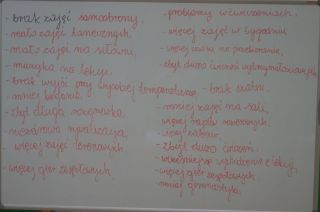 - brak zajęć samoobrony,
- mało zajęć tanecznych
- mało zajęć na siłowni,
- muzyka na lekcji
- brak wyjść przy wysokiej temperaturze
- mniej biegania
- zbyt długa rozgrzewka
- niezdrowa rywalizacja
- więcej zajęć terenowych
- więcej gier zespołowych
- problemy w ćwiczeniach,
- więcej zajęć w tygodniu
- więcej czasu na przebranie,
- zbyt dużo ćwiczeń wytrzymałościowych
- brak czasu
- mniej zajęć na sali,
- więcej zajęć
- więcej zabaw,
- zbyt dużo ćwiczeń
- wcześniejsze z lekcji,
- więcej gier zespołowych
- mniej gimnastyki